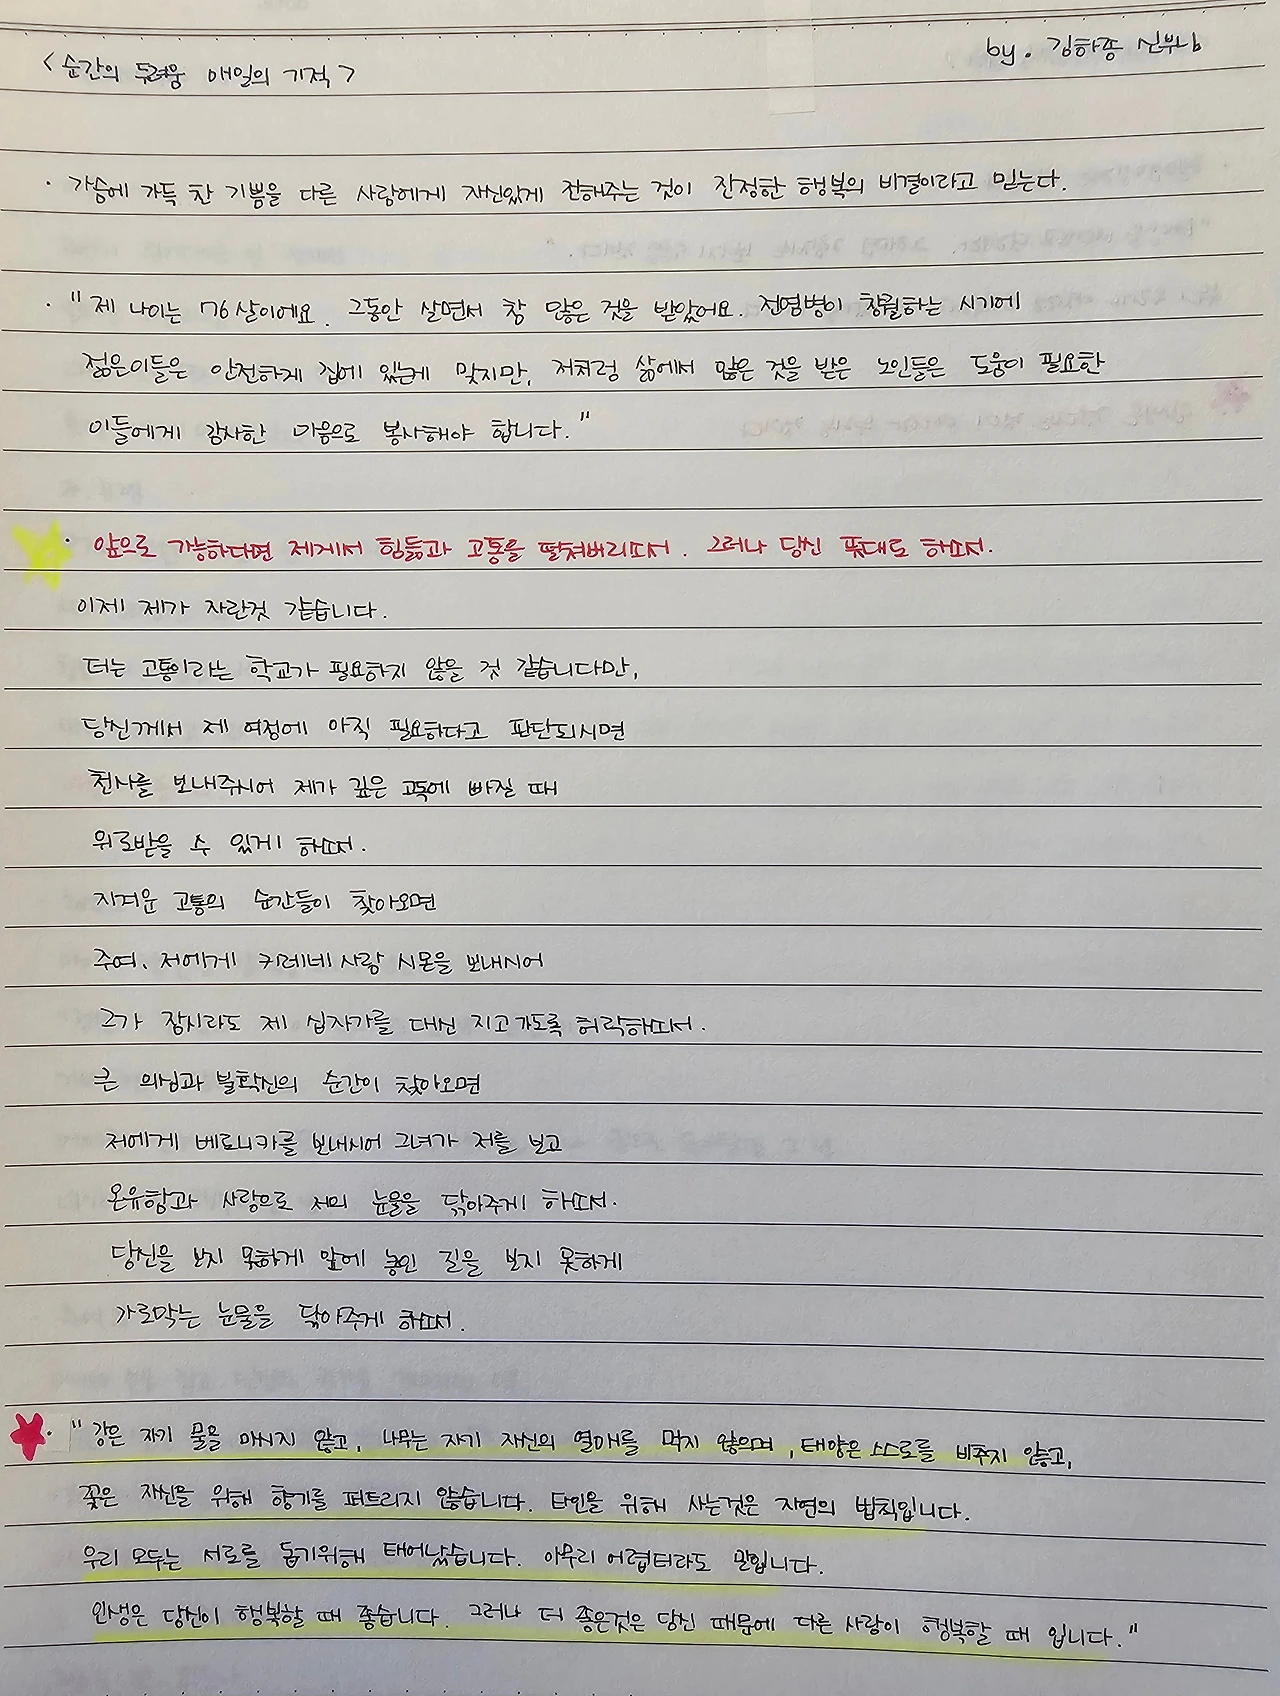 <순간의 두려움 매일의 기적>
by. 김하종 신부님
· 가슴에 가득 찬 기쁨을 다른 사람에게 자신있게 전해주는 것이 진정한 행복의 비결이라고 믿는다.
· "제 나이는 76살이에요. 그동안 살면서 참 많은 것을 받았어요. 전염병이 창궐하는 시기에
젊은이들은 안전하게 집에 있는게 맞지만, 저처럼 삶에서 많은 것을 받은 노인들은 도움이 필요한
이들에게 감사한 마음으로 봉사해야 합니다."
· 앞으로 가능하다면 제게서 힘듦과 고통을 떨쳐버리소서. 그러나 당신 뜻대로 하소서.
이제 제가 자란것 같습니다.
더는 고통이라는 학교가 필요하지 않을 것 같습니다만,
당신께서 제 여정에 아직 필요하다고 판단되시면
천사를 보내주시어 제가 깊은 고독에 빠질 때
위로받을 수 있게 하소서.
지겨운 고통의 순간들이 찾아오면
주여, 저에게 키레네 사람 시몬을 보내시어
그가 잠시라도 제 십자가를 대신 지고 가도록 허락하소서.
큰 의심과 불확신의 순간이 찾아오면
저에게 베로니카를 보내시어 그녀가 저를 보고
온유함과 사랑으로 저의 눈물을 닦아주게 하소서.
당신을 보지 못하게 앞에 놓인 길을 보지 못하게
가로막는 눈물을 닦아주게 하소서.
· "강은 자기 물을 마시지 않고, 나무는 자기 자신의 열매를 먹지 않으며, 태양은 스스로를 비추지 않고,
꽃은 자신을 위해 향기를 퍼트리지 않습니다. 타인을 위해 사는것은 자연의 법칙입니다.
우리 모두는 서로를 돕기위해 태어났습니다. 아무리 어렵더라도 말입니다.
인생은 당신이 행복할 때 좋습니다. 그러나 더 좋은것은 당신 때문에 다른 사람이 행복할 때 입니다."